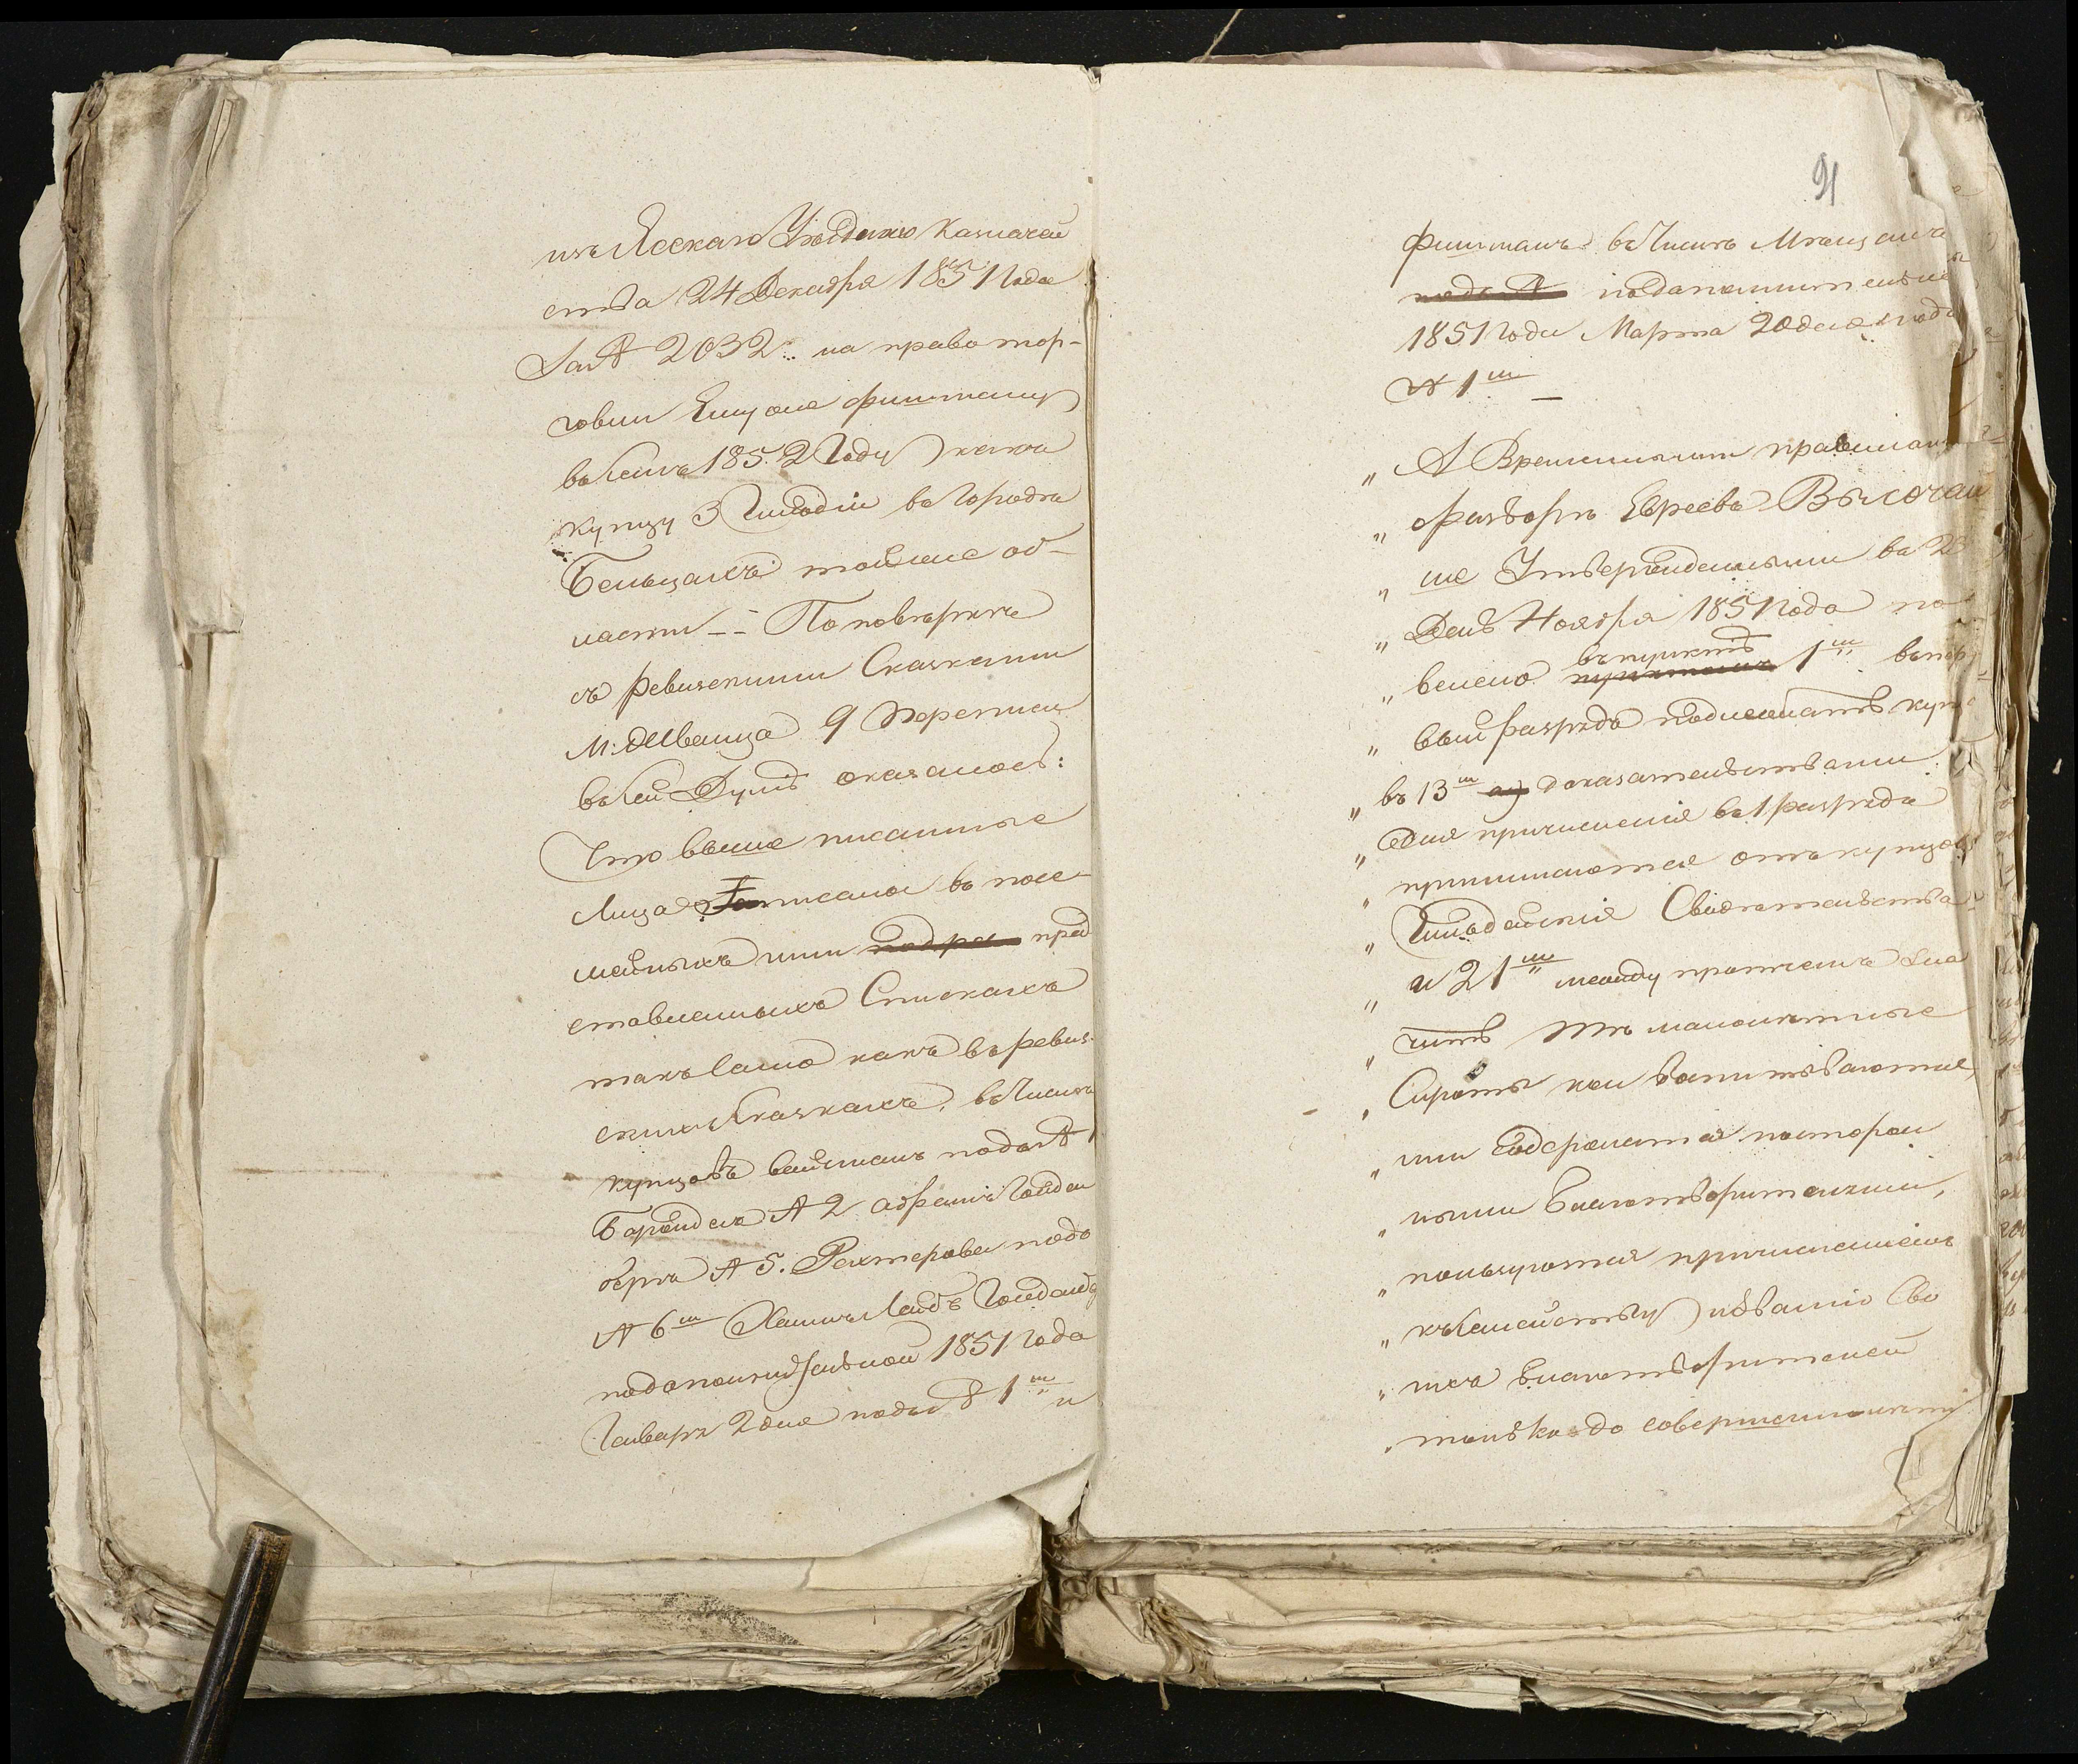 изъ Ясскаго Уѣзднаго Казначей
ства 24 Декабря 1851 года
за № 2032. на право тор-
говли Фишманну
въ семъ 1852 Году какъ
купцу 3 Гильдіи въ городѣ
Бельцахъ тойже об-
ласти -- По повѣркѣ
съ ревизскими Сказками
М: Бельца 9 Переписи
въ сей Думѣ оказалось:
Что выше писанные
Лица записаны въ посе-
мейныхъ ими пред
ставленныхъ Спискахъ
такъ само какъ въ ревиз-
скихъ Сказкахъ, въ Числѣ
купцовъ подъ №
№ 2 Абрамъ Гольден
бергъ № 5. подъ
№ 6 м Хаимъ Лейбъ
подополнительной 1851 года
Генваря 2 дня подъ № 1 м и
91
Фишманъ въ Числѣ Мѣщанъ
подополнительной
1851 года Марта 20 дня подъ
№ 1 м
„ А Временными правилами о
„ разборѣ Евреевъ Высочай
„ ше Утвержденными въ 23
„ День Ноября 1851 года по
въ пунктѣ
„ велено 1 м въ пер
„ вый разрядъ подлежатъ купцы
„ въ 13 м доказательствами
„ Для причисленія въ 1 разрядъ
„ принимаются отъ купцовъ
„ Гильдейскія Свидѣтельства
„ и 21 м между прочимъ зна
„ читъ Тѣ малолѣтные
„ Сироты кои воспитываются
„ или Содержатся посторон
„ ними благотворителями,
„ пользуются причисленіемъ
„ къ Семейству и званію Сво
„ ихъ благотворителей
„ только до совершеннолѣтія